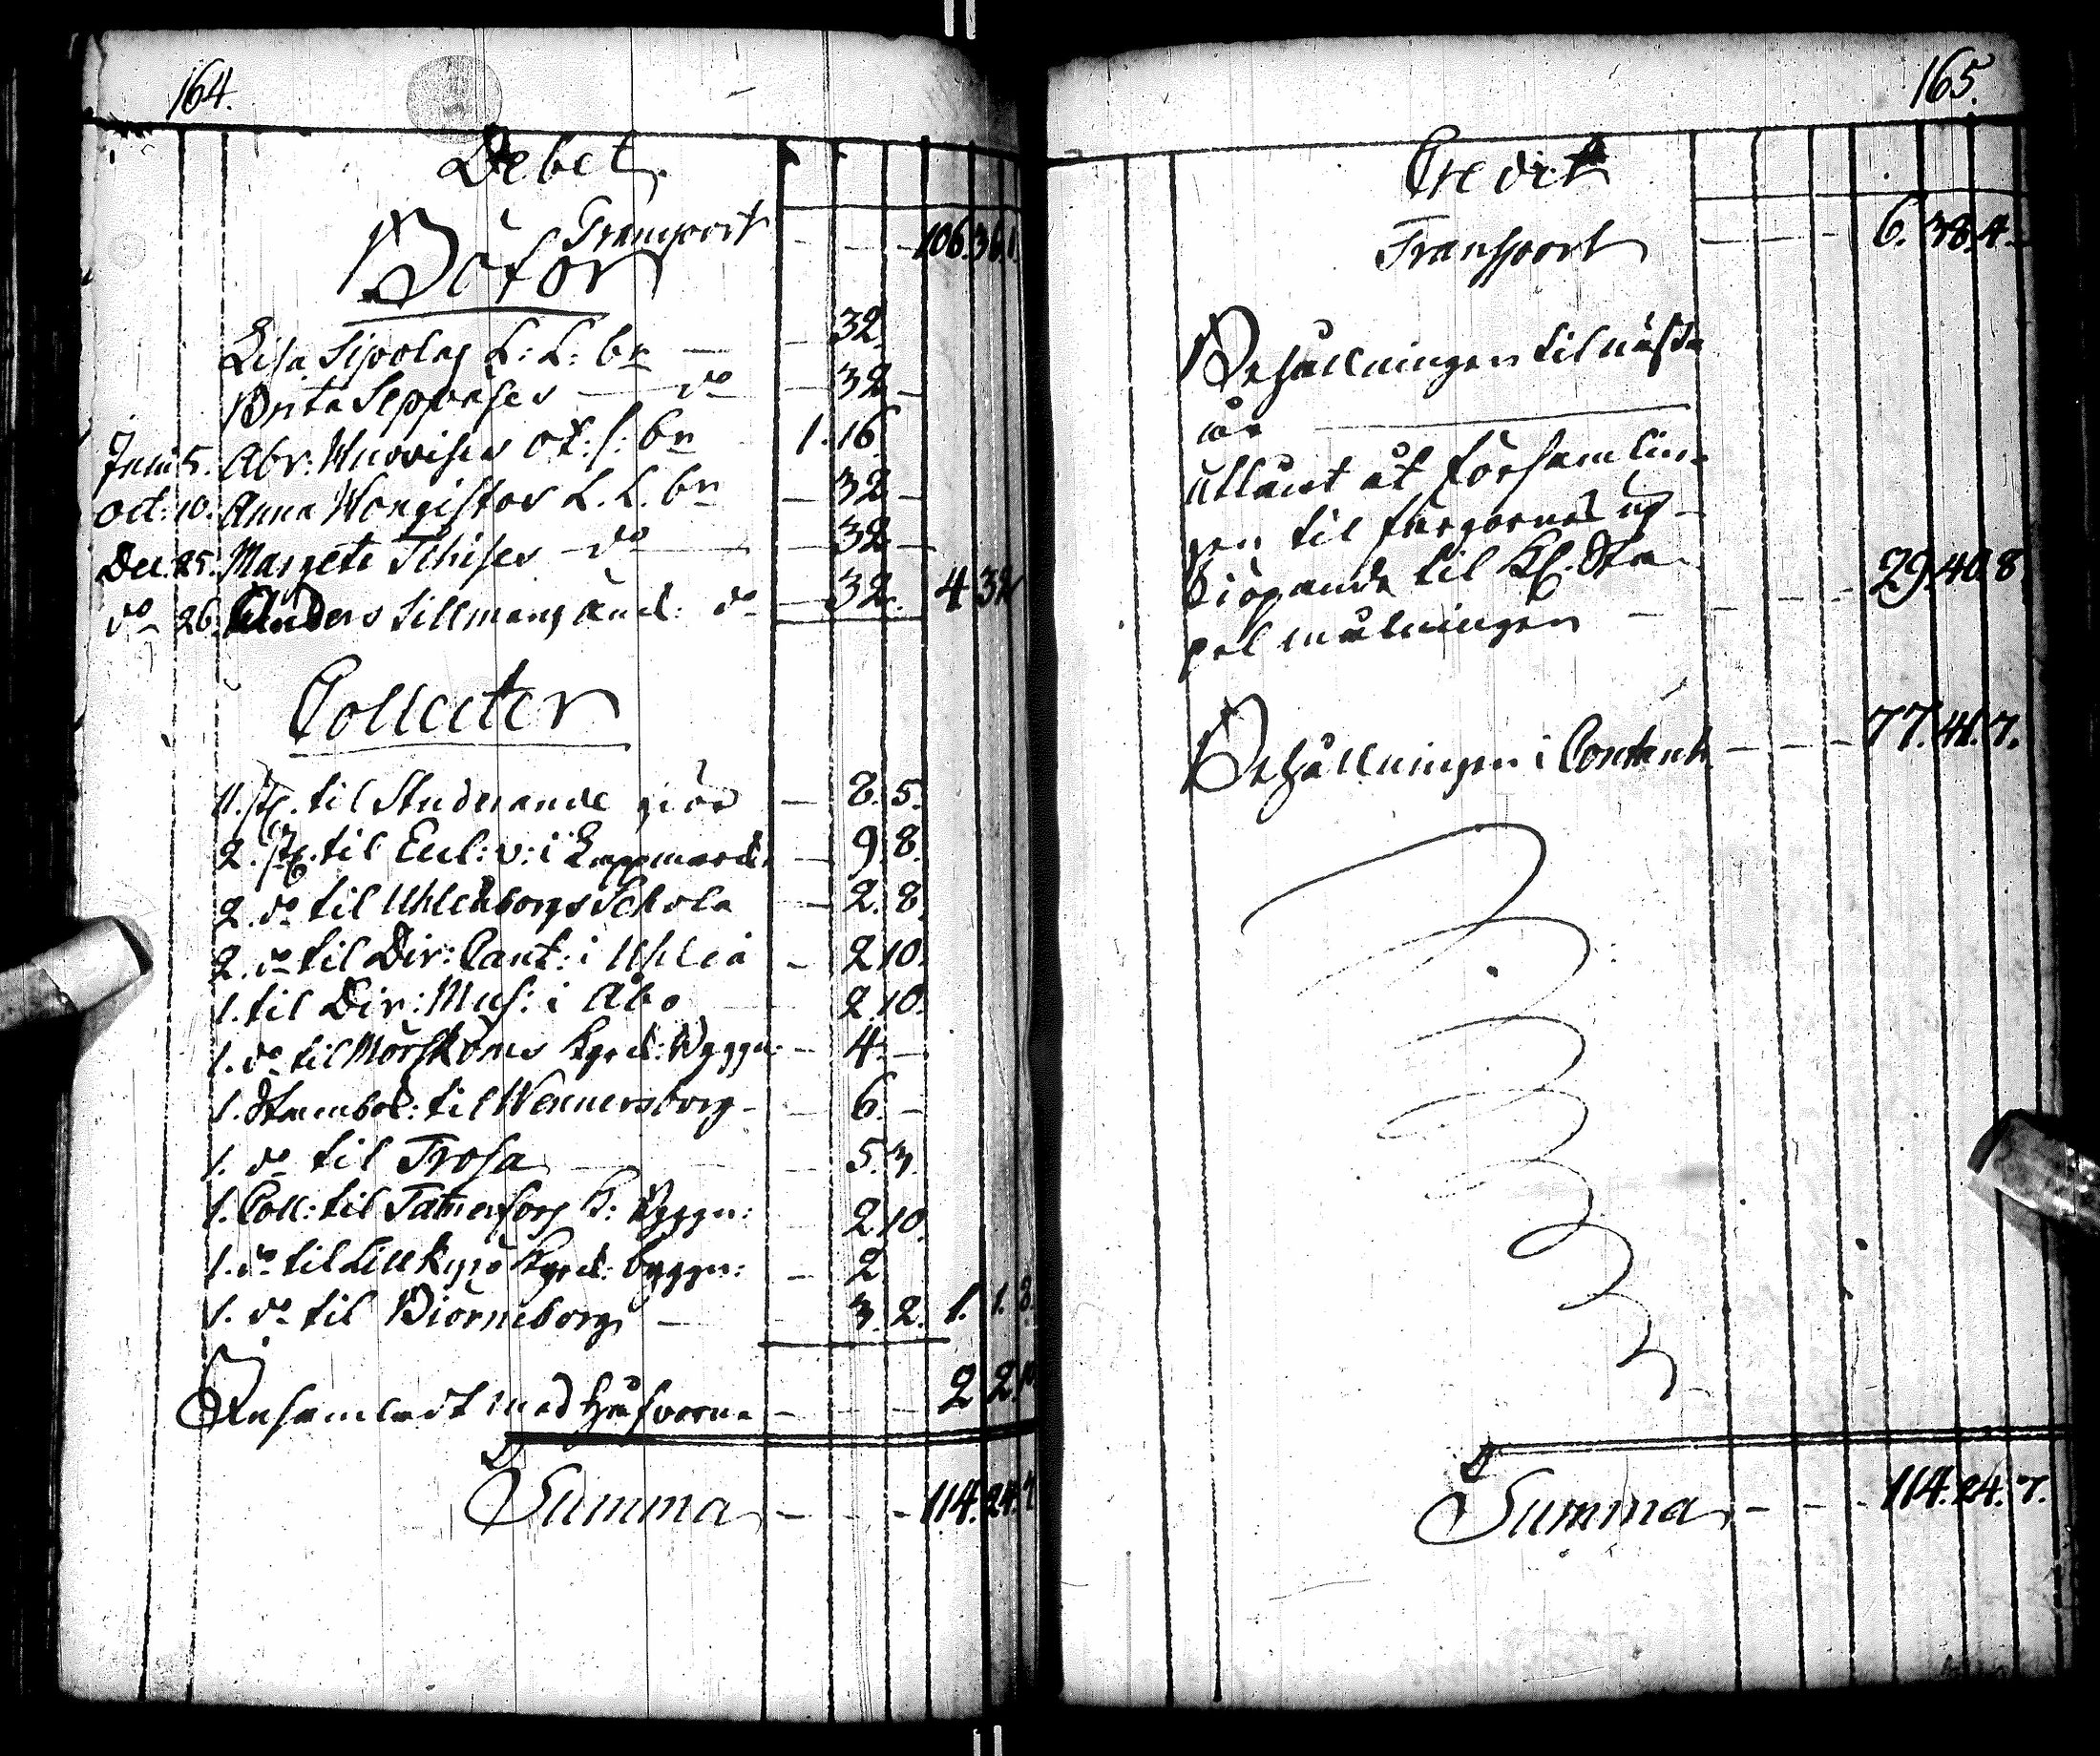 164.
Debet
Transport - - - 106. 36. 1.
Böter
Lisa Sipolas L: L: br — - 32.
Brita Seppäses — do — 32 —
Junii 5. Abr: Wuorises ox: s: br 1. 16.
Oct: 10. Anna Wongistos L. L. br — 32 —
Dec. 25. Margeta Tihises — do — 32 —
do 26. Anders Sillmans änck: do — 32. 4 32
Collecter
11. st. til Studerande giör — 8. 5.
2. st. til Eccl: v: i Lappmarck. — 9. 8.
2. do til Uhleåborgs Schola — 2. 8.
2. do til Dir: Cant: i Uhleå - 2. 10.
1. til Dir: Mus: i Åbo 2. 10.
1. do til Mörskoms Kyrck: Byggn: — 4. —
1. Stambok: til Wennersborg - - 6. —
1. do til Trosa - 5. 3.
1. Coll: til Tamersfors K: Byggn: 2. 10.
1. do til Lillkyro Kyrck: byggn: — 2.
1. do til Biörneborg — 3. 2. 1. 1. 8.
Ansamladt med Håfvarna - - - 2 2. 10
Summa - - - 114. 24. 7
165.
Credit
Transport — - - - 6. 38. 4.
Behållningen til nästa
år
Utlånt åt församlin-
gen til färgornas up-
kiöpande til Kl. Sta-
pel målningen — - - - 29. 40. 8.
Behållningen i Contant — - - - 77. 41. 7.
Summa - - - 114. 24. 7.